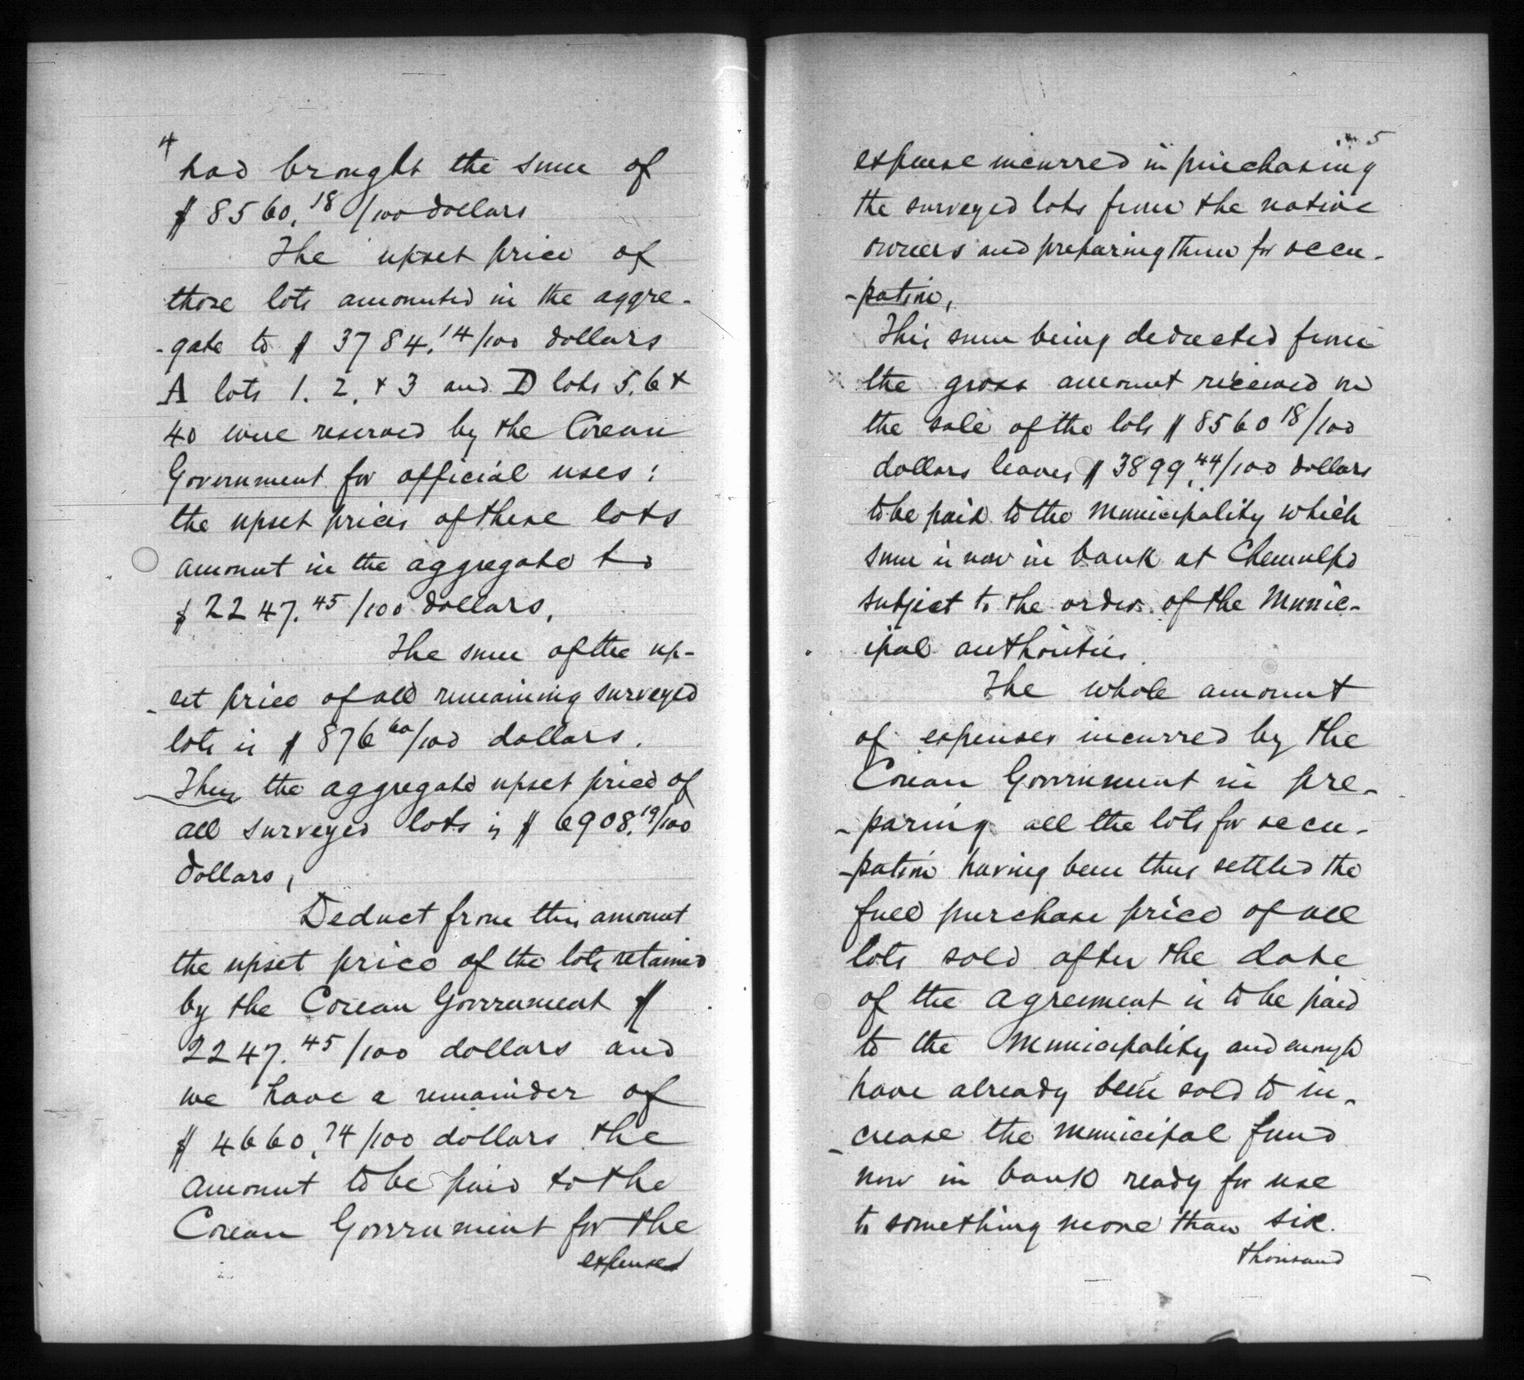 4
had brought the sum of
$ 8560.18/100 dollars
The upset price of
those lots amounted in the aggre-
-gate to $ 3784.14/100 dollars
A lots 1. 2. & 3 and D lots 5. 6 &
40 were reserved by the Corean
Government for official uses:
the upset prices of these lots
amount in the aggregate to
$ 2247.45/100 dollars.
The sum of the up-
-set price of all remaining surveyed
lots is $ 876 60/100 dollars.
Thus the aggregate upset price of
all surveyed lots is $ 6908.19/100
dollars,
Deduct from this amount
the upset price of the lots retained
by the Corean Government $
2247.45/100 dollars and
we have a remainder of
$ 4660.74/100 dollars the
amount to be paid to the
Corean Government for the
expenses
5
expense incurred in purchasing
the surveyed lots from the native
owners and preparing them for occu-
-pation,
This sum being deducted from
the gross amount received in
the sale of the lots $ 8560 18/100
dollars leaves $ 3899.44/100 dollars
to be paid to the Municipality which
sum is now in bank at Chemulpo
subject to the order of the Munic-
ipal authorities.
The whole amount
of expenses incurred by the
Corean Government in pre-
-paring all the lots for occu-
-pation having been thus settled the
full purchase price of all
lots sold after the date
of the agreement is to be paid
to the Municipality and enough
have already been sold to in-
-crease the municipal fund
now in bank ready for use
to something more than six
thousand